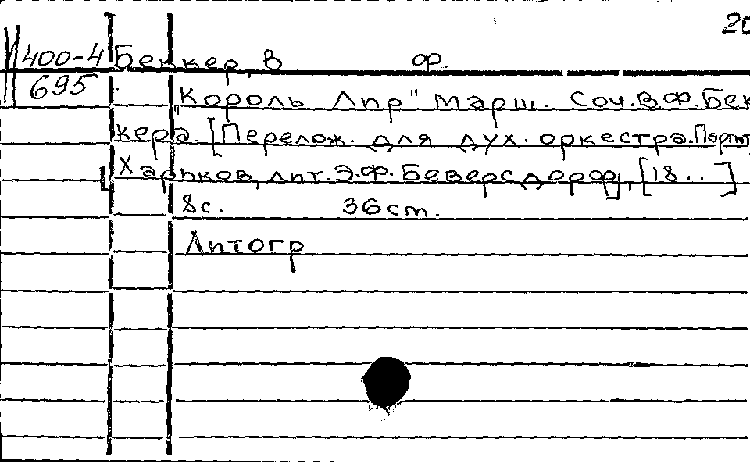 20
400-4 Беккер, В Ф.
695 "Король Лир" Марш. Соч. В.Ф. Бек
кера. [Перелож. для дух. оркестра. Парт
[Харьков, лит. Э.Ф. Беверсдорф], [18..]
8 с. 36 ст.
Литогр